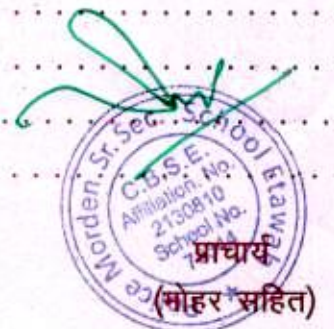 Morden Sr. Sec. School Etawah
C.B.S.E.
Affiliation. No.
2130810
School No.
प्राचार्य
(मोहर सहित)